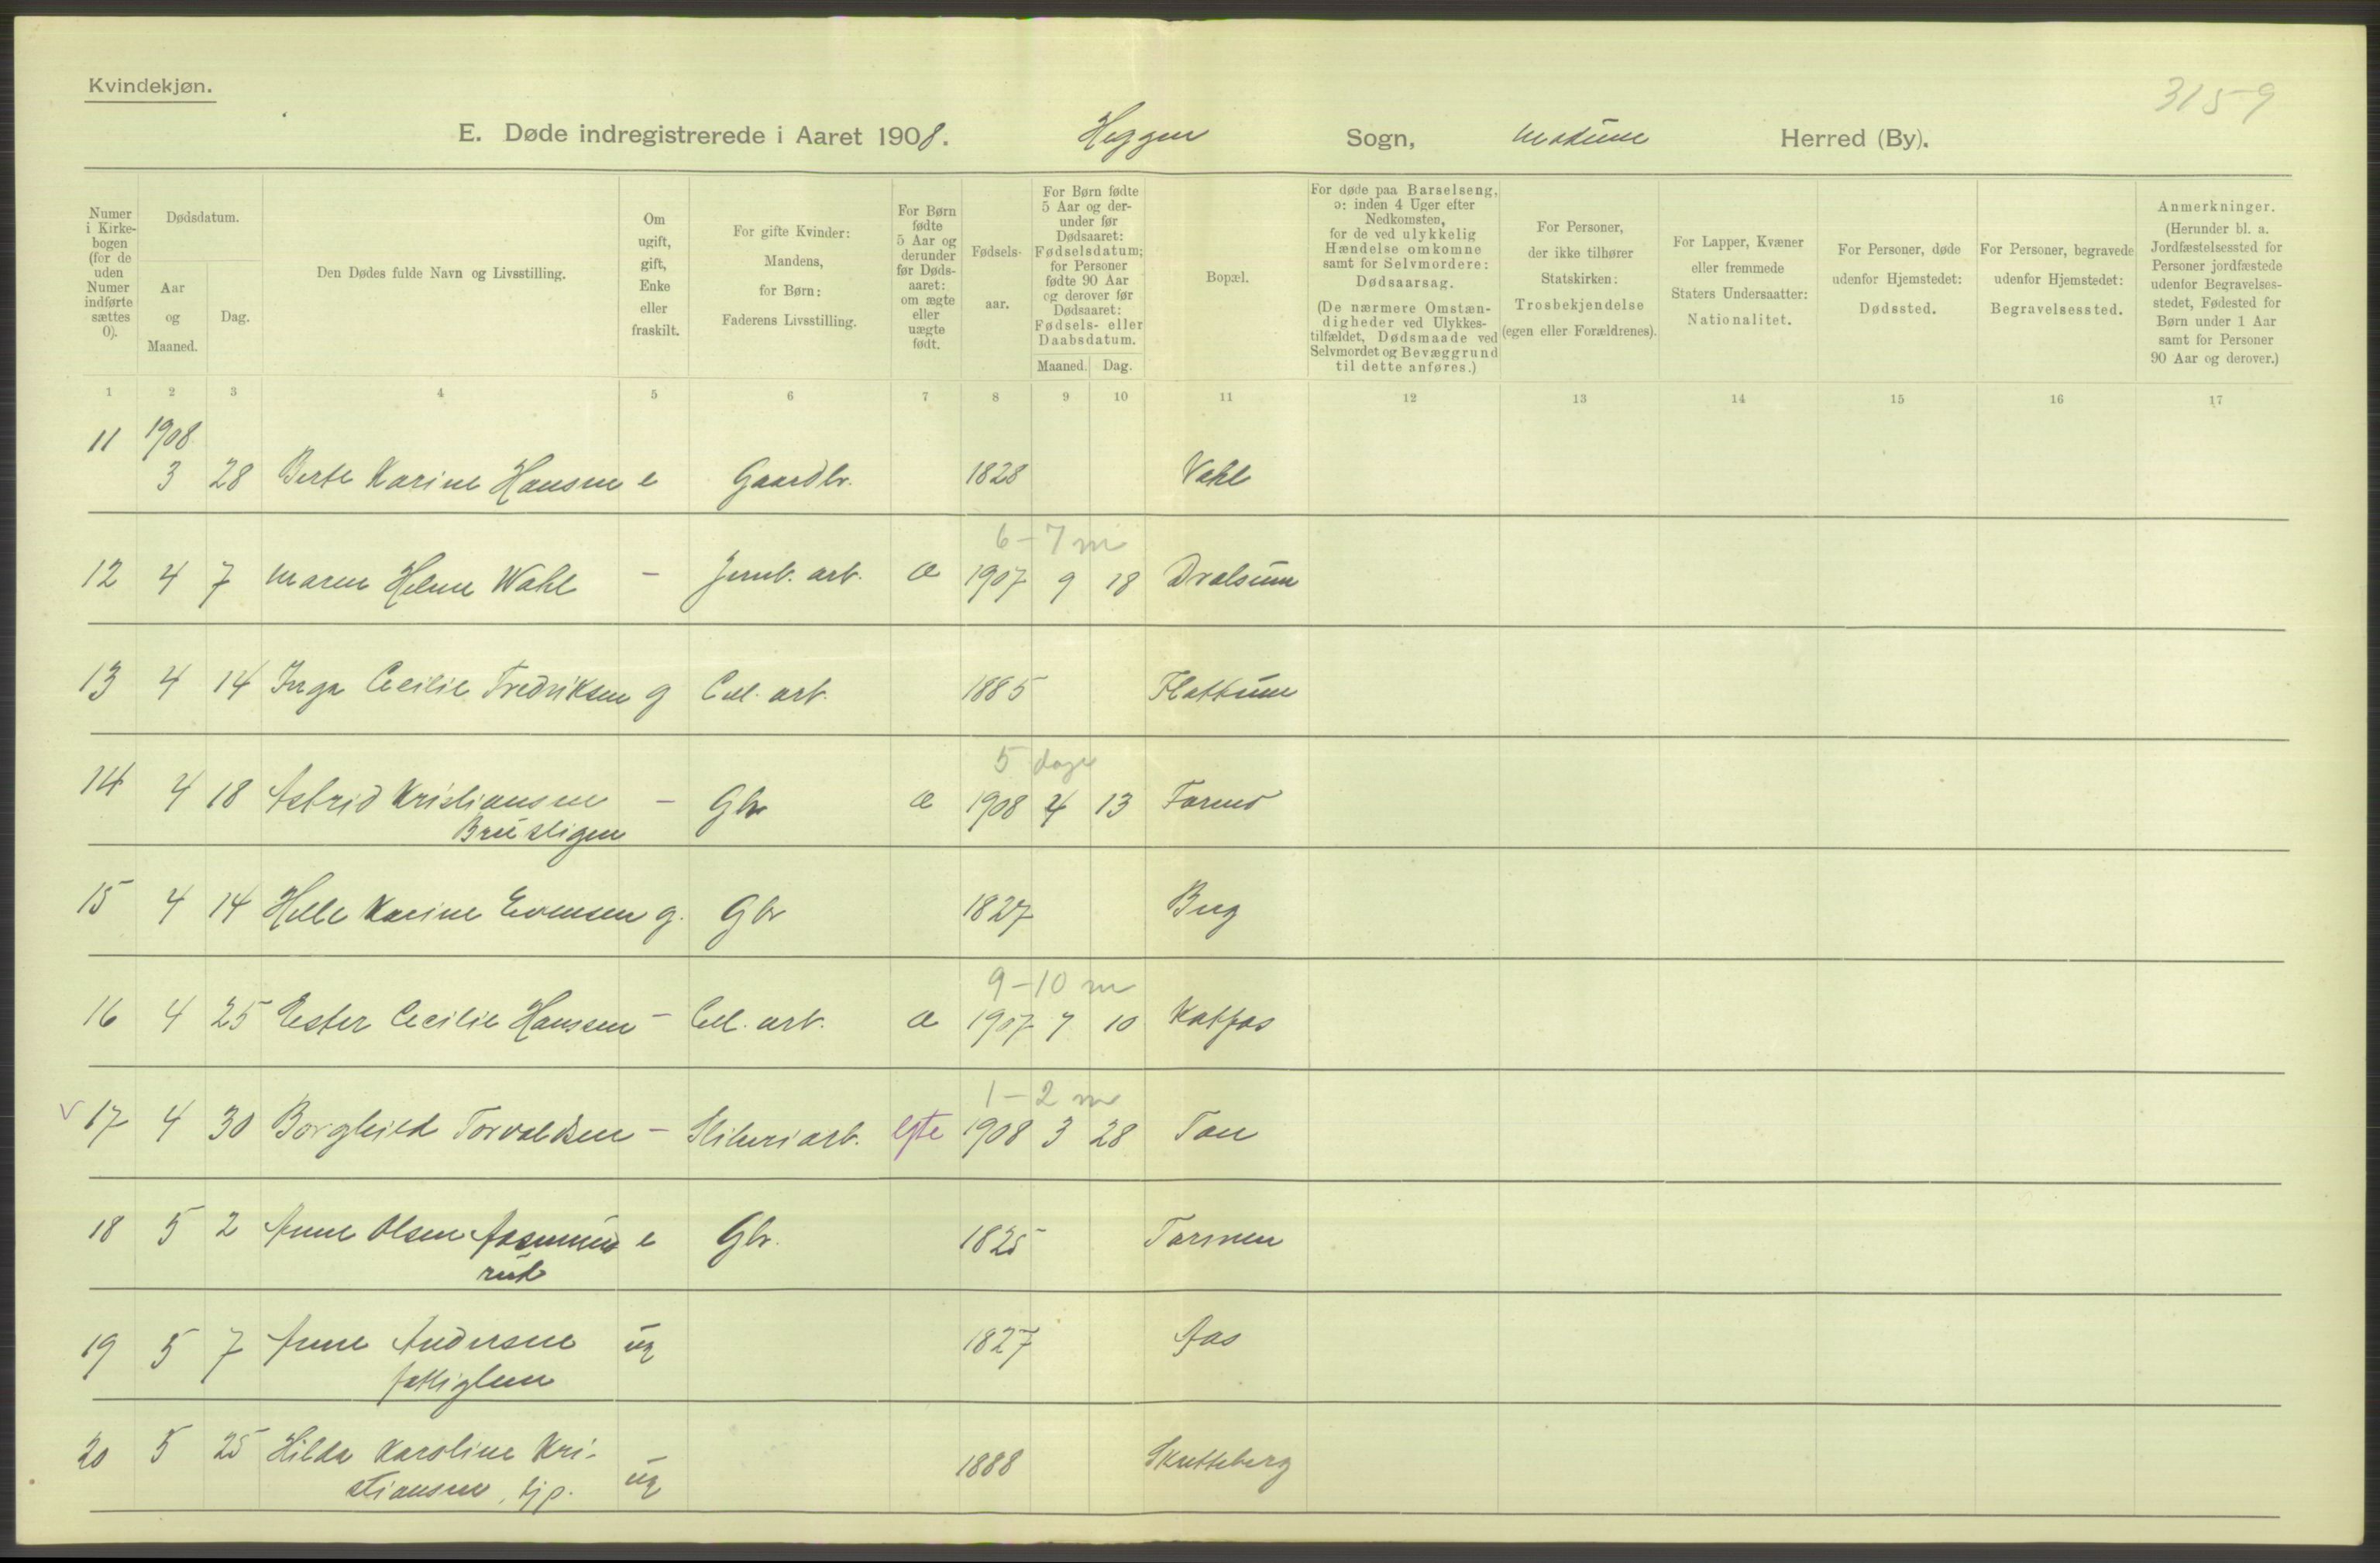 Kvindekjøn.
3159
E. Døde indregistrerede i Aaret 1908. Heggen Sogn, Modum Herred (By).
Numer i Kirkebogen (for de uden Numer indførte sættes 0).
Dødsdatum.
Aar og Maaned.
Dag.
Den Dødes fulde Navn og Livsstilling.
Om ugift, gift, Enke eller fraskilt.
For gifte Kvinder: Mandens, for Børn: Faderens Livsstilling.
For Børn fødte 5 Aar og derunder før Dødsaaret: om ægte eller uægte født.
Fødselsaar.
For Børn fødte 5 Aar og derunder før Dødsaaret: Fødselsdatum; for Personer fødte 90 Aar og derover før Dødsaaret: Fødsels- eller Daabsdatum.
Maaned. Dag.
Bopæl.
For døde paa Barselseng, ɔ: inden 4 Uger efter Nedkomsten, for de ved ulykkelig Hændelse omkomne samt for Selvmordere: Dødsaarsag.
(De nærmere Omstændigheder ved Ulykkestilfældet, Dødsmaade ved Selvmordet og Bevæggrund til dette anføres.)
For Personer, der ikke tilhører Statskirken: Trosbekjendelse (egen eller Forældrenes).
For Lapper, Kvæner eller fremmede Staters Undersaatter: Nationalitet.
For Personer, døde udenfor Hjemstedet: Dødssted.
For Personer, begravede udenfor Hjemstedet: Begravelsessted.
Anmerkninger. (Herunder bl. a. Jordfæstelsessted for Personer jordfæstede udenfor Begravelsesstedet, Fødested for Børn under 1 Aar samt for Personer 90 Aar og derover.)
1 2 3 4 5 6 7 8 9 10 11 12 13 14 15 16 17
11 1908
3 28 Berte Karine Hansen e Gaardbr. 1828 Vahl
6-7 m
12 4 7 Maren Helene Wahl - Jernb. arb. æ 1907 9 18 Dralsum
13 4 14 Inga Cecilie Fredriksen g Cel. arb. 1885 Flattum
5 dage
14 4 18 Astrid Kristiansen - Gbr æ 1908 4 13
Brustigen
15 4 14 Helle Karine Evensen g. Gbr 1827 Berg
9-10 m
16 4 25 Ester Cecilie Hanssen - Cel. arb. æ 1907 7 10 Katfos
1-2 m
v 17 4 30 Borghild Torvaldsen - Sliberiarb. egte 1908 3 28
18 5 2 Anne Olsen Aasmund e Gbr. 1825
rud
19 5 7 Anne Andersen ug 1827 Aas
fattiglem
20 5 25 Hilda Karoline Kri-
stiansen, tjp. ug 1888 Skutteberg